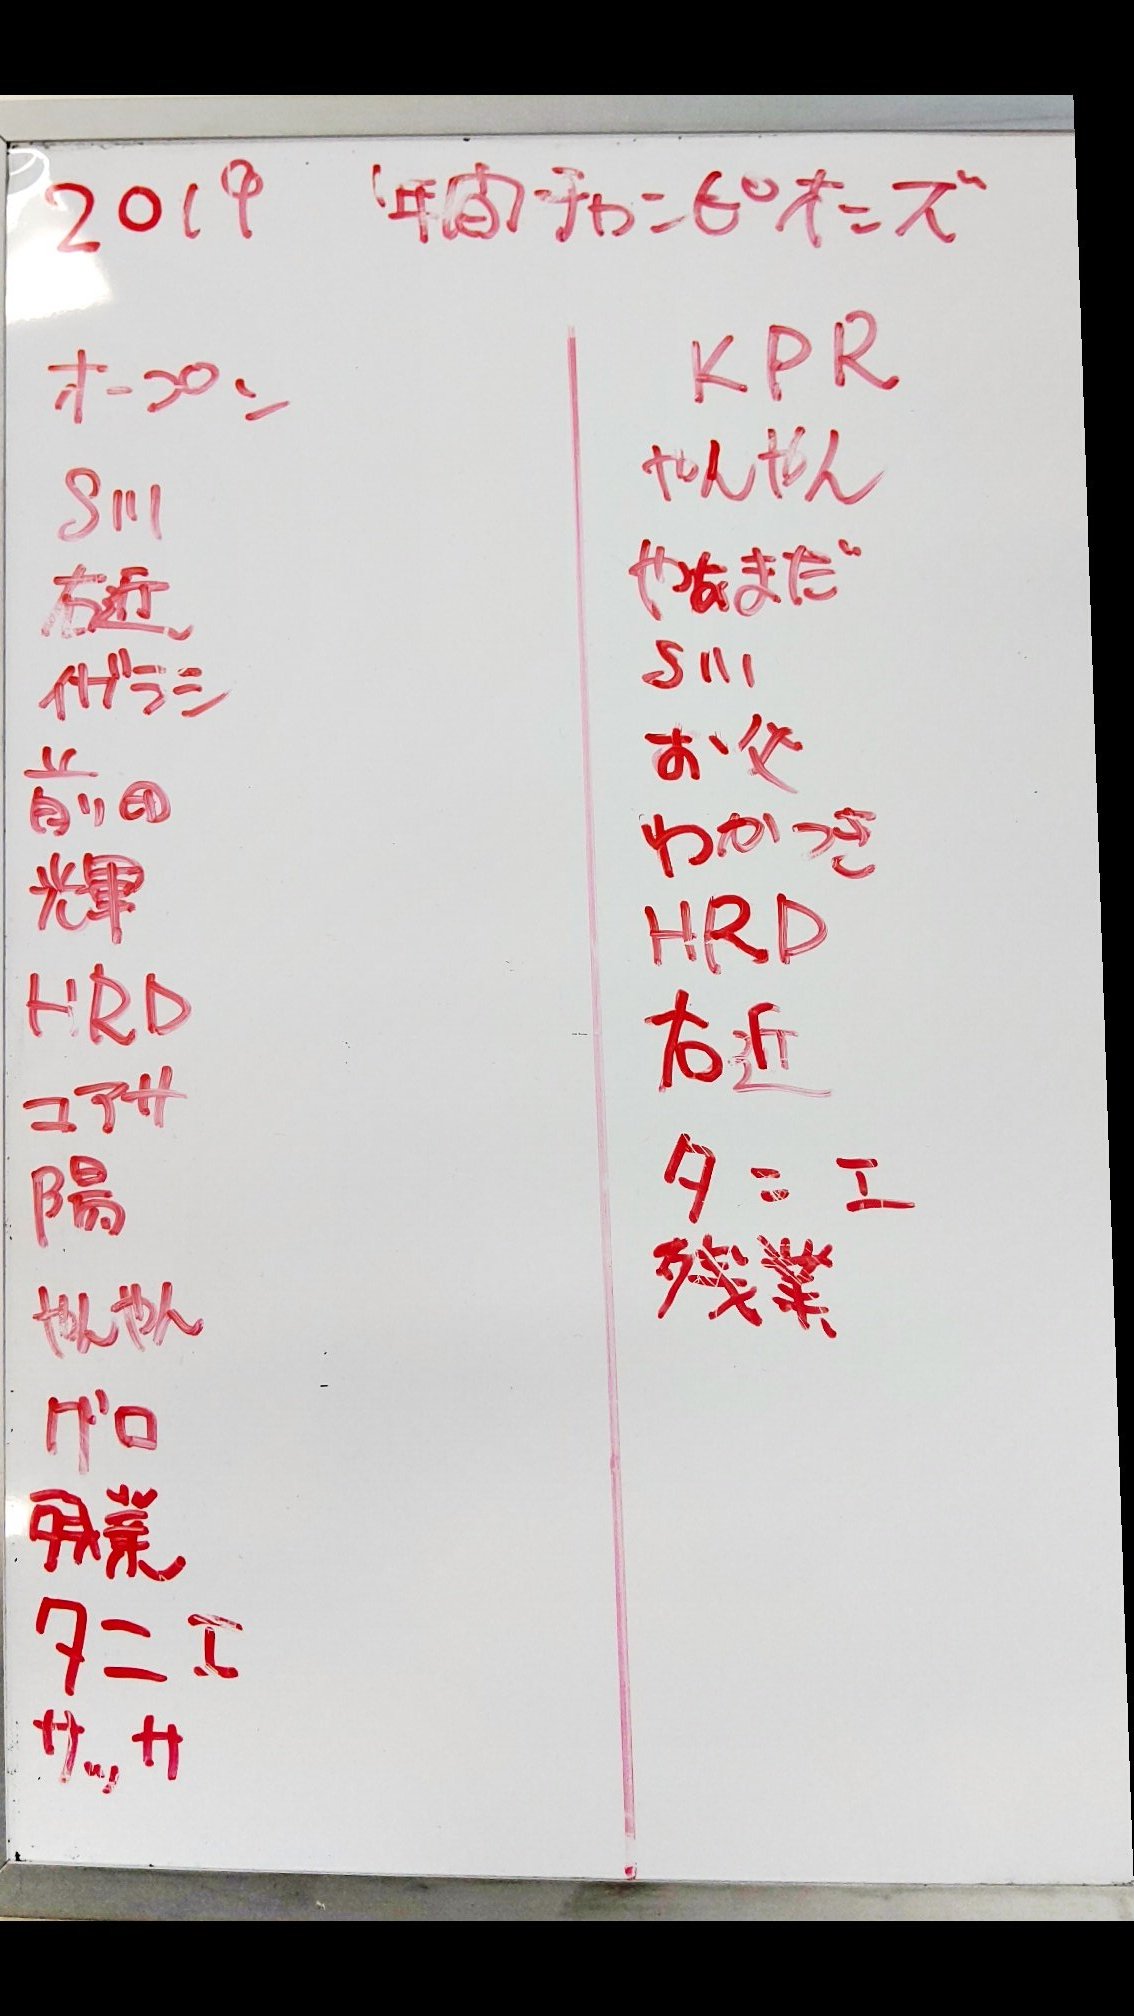 2019 年間チャンピオンズ
オープン
S川
右近
イガラシ
前田
輝
HRD
ユアサ
陽
やんやん
グロ
残業
タニエ
サッサ
KPR
やんやん
やまだ
S川
お父
わかつき
HRD
右近
タニエ
残業